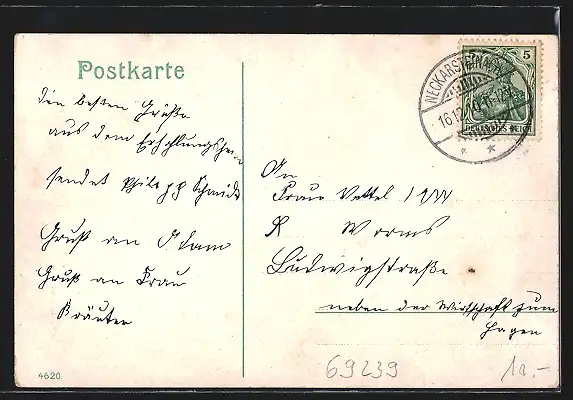 Postkarte
die besten Grüße
aus dem Erholungsheim
sendet Philipp Schmidt
Gruß an Adam
Gruß an Frau
Bräuter
4620.
NECKARSTEINACH
16.12. 11-12V
5
DEUTSCHES REICH
An
Frau Vettel
Worms
Ludwigstraße
neben der Wirtschaft zum
Hagen
69239
10.-